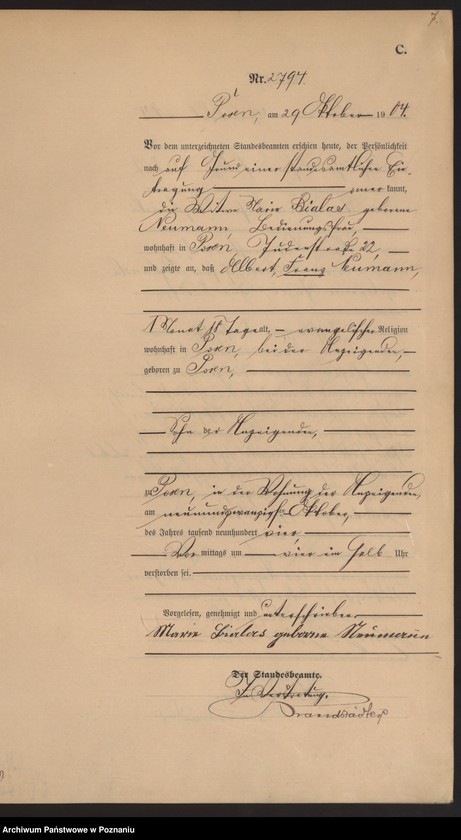 7.
C.
Nr. 2794.
Posen, am 29 Oktober 1904.
Vor dem unterzeichneten Standesbeamten erschien heute, der Persönlichkeit
nach auf Grund einer standesamtlichen Ein-
tragung kannt,
die Witwe Marie Bialas geborene
Neumann, Bedienungsfrau,
wohnhaft in Posen, Judenstraße 22,
und zeigte an, daß Albert, Franz Neumann,
1 Monat Tage alt, evangelischer Religion
wohnhaft in Posen, bei der Anzeigenden,
geboren zu Posen,
Sohn der Anzeigenden,
zu Posen, in der Wohnung der Anzeigenden,
am neunundzwanzigsten Oktober,
des Jahres tausend neunhundert vier,
Vor mittags um vier ein halb Uhr
verstorben sei.
Vorgelesen, genehmigt und unterschrieben.
Marie Bialas geborne Neumann
Der Standesbeamte.
In Vertretung.
Brandstädter
Archiwum Państwowe w Poznaniu